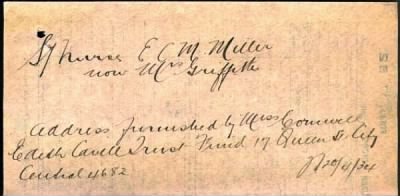 S/ Nurse E C M. Miller
now Mrs Griffiths
Address furnished by Miss Cornwell
Edith Cavell Trust Fund 17 Queen St City
Central 4682
20/4/34